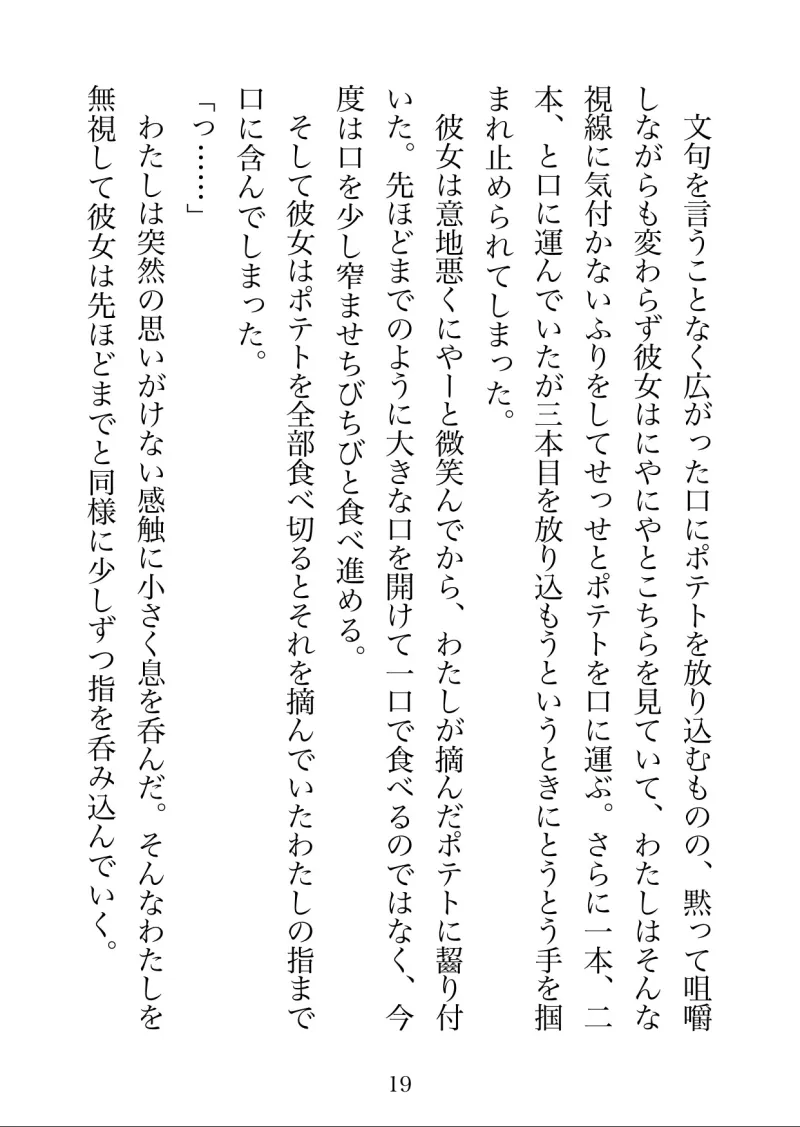 文句を言うことなく広がった口にポテトを放り込むものの、黙って咀嚼
しながらも変わらず彼女はにやにやとこちらを見ていて、わたしはそんな
視線に気付かないふりをしてせっせとポテトを口に運ぶ。さらに一本、二
本、と口に運んでいたが三本目を放り込もうというときにとうとう手を掴
まれ止められてしまった。
　彼女は意地悪くにやーと微笑んでから、わたしが摘んだポテトに齧り付
いた。先ほどまでのように大きな口を開けて一口で食べるのではなく、今
度は口を少し窄ませちびちびと食べ進める。
　そして彼女はポテトを全部食べ切るとそれを摘んでいたわたしの指まで
口に含んでしまった。
「っ……」
　わたしは突然の思いがけない感触に小さく息を呑んだ。そんなわたしを
無視して彼女は先ほどまでと同様に少しずつ指を呑み込んでいく。
19